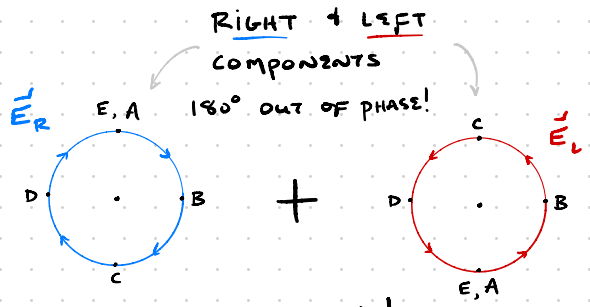 RIGHT & LEFT
COMPONENTS
180° OUT OF PHASE!
E_R
E, A
D
B
C
+
E_L
C
D
B
E, A